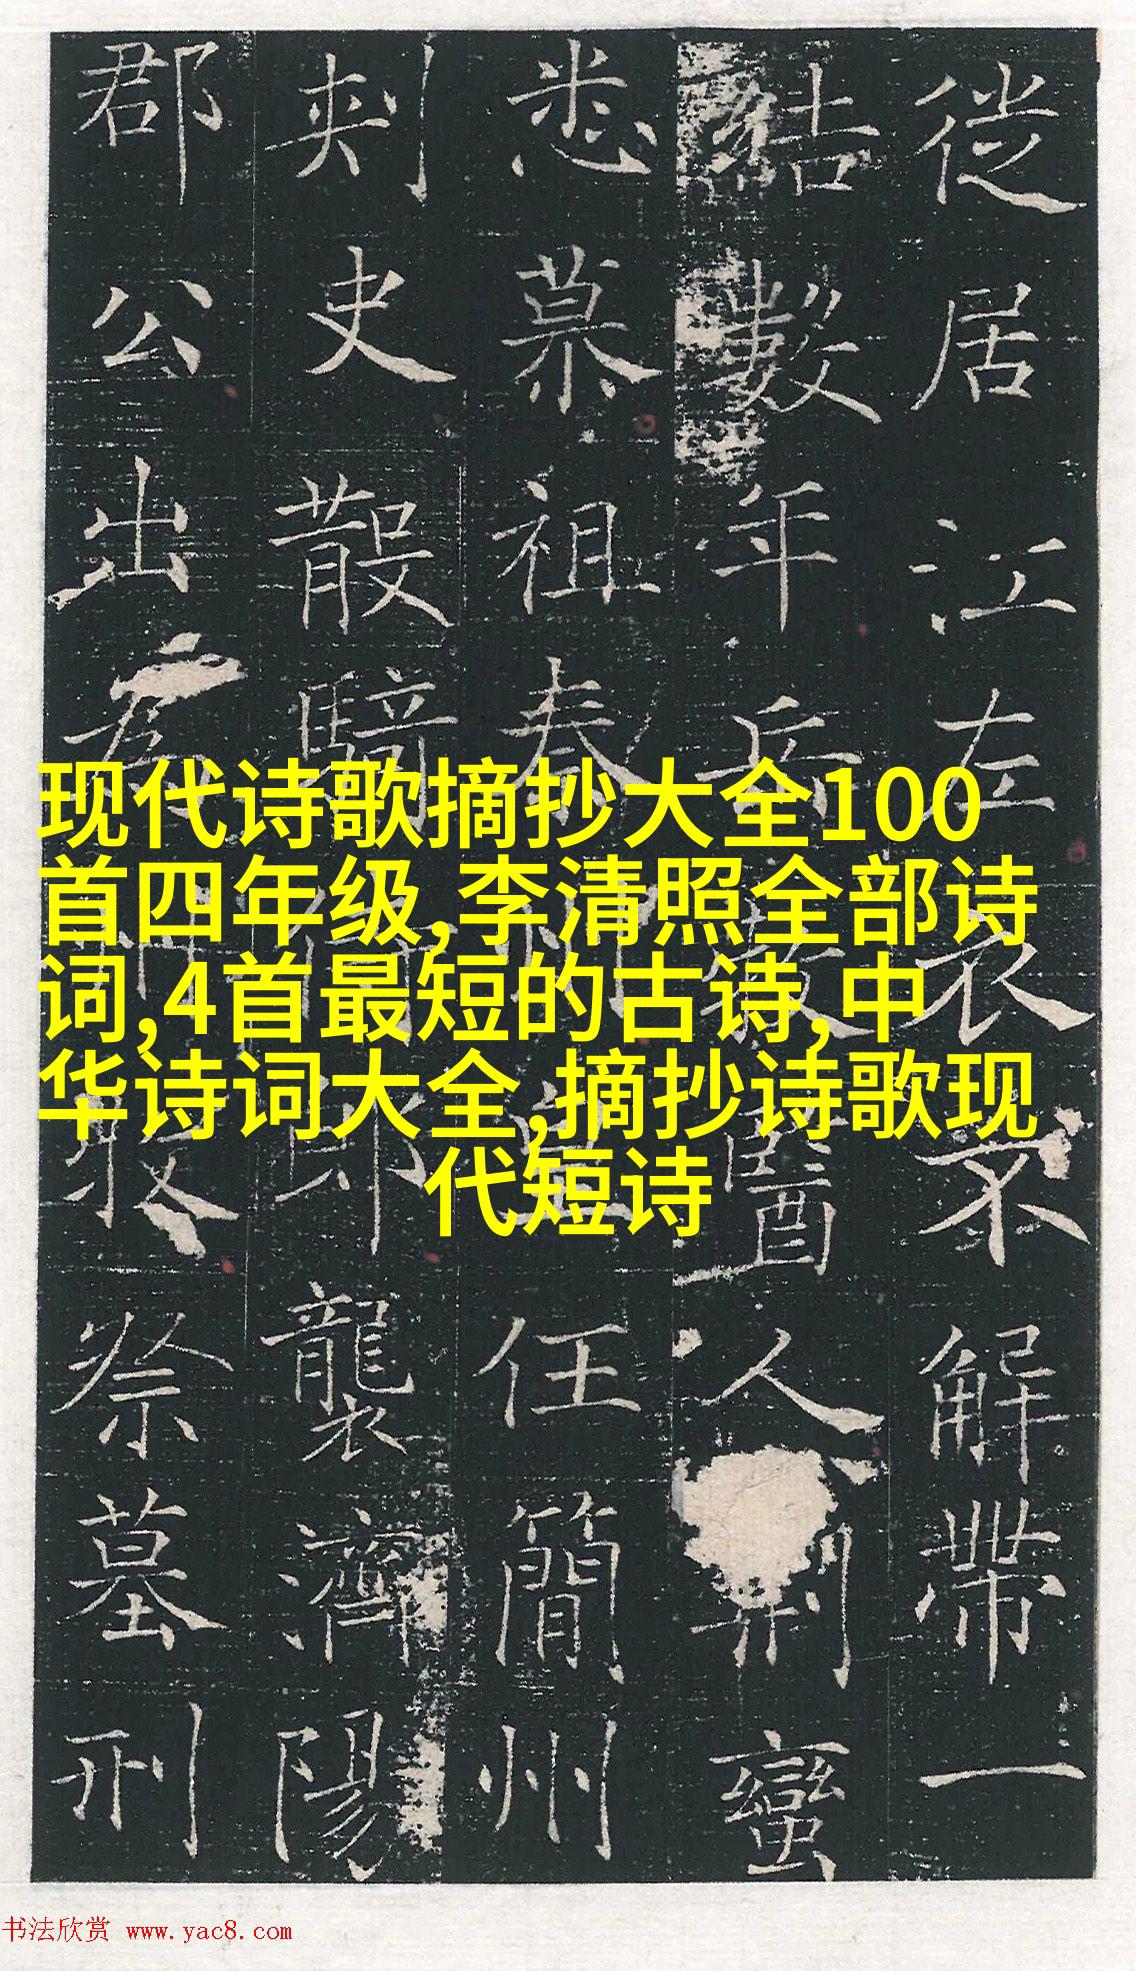 徙居江左衣不解帶一
結數年岳
醫人荆蠻
悉慕祖泰
任簡州
刺史散騎
襲濟陽
郡公出
祭墓刑
现代诗歌摘抄大全100
首四年级,李清照全部诗
词,4首最短的古诗,中
华诗词大全,摘抄诗歌现
代短诗
书法欣赏 www.yac8.com